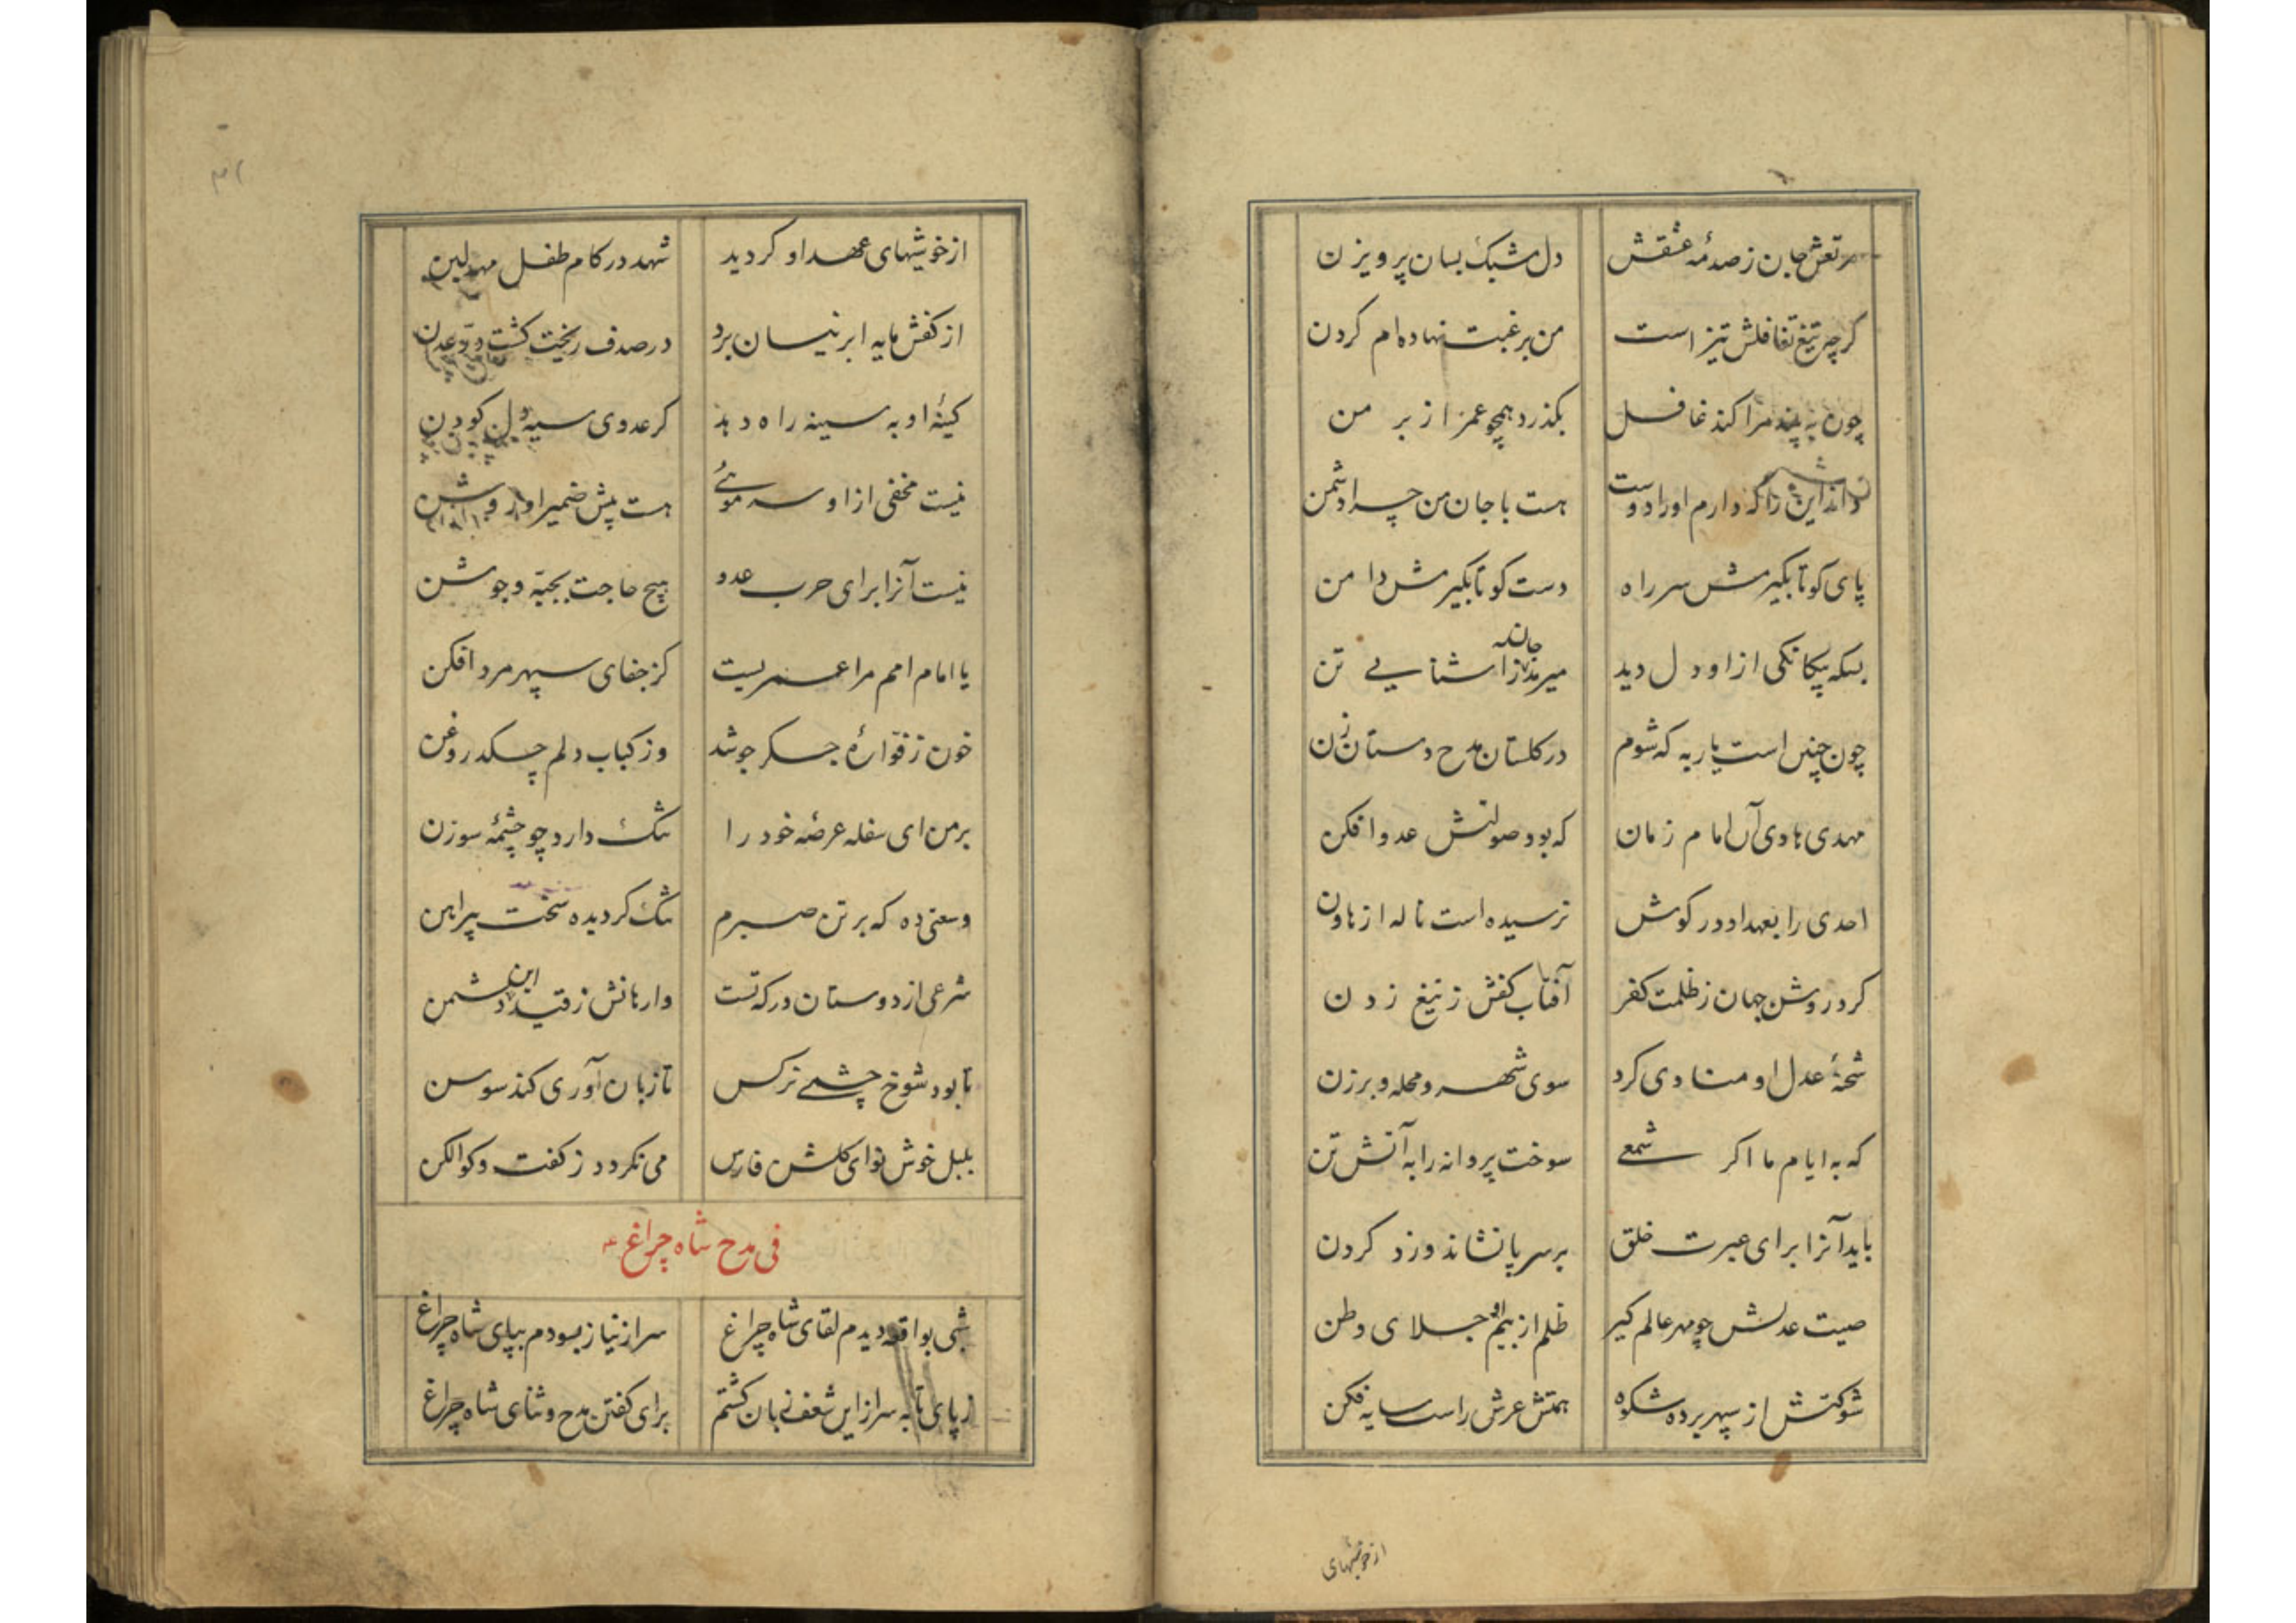 مرتعش جان ز صدمهٔ عشقش دل مشبک بسان پرویزن
کرچه تیغ تغافلش تیز است من برغبت نهاده‌ام کردن
چون به پند مرا کند غافل بکذرد همچو عمر از بر من
داند این را که دارم او را دوست هست با جان من چرا دشمن
پای کو تا بگیرمش سر راه دست کو تا بگیرمش دامن
بسکه بیکانکی از او دل دید میرمد ز اشنایی تن
جان
چون چنین است یار به که شوم در کلستان مدح دستان زن
مهدی هادی آن امام زمان که بود صولتش عدو افکن
احدی را بعهد او در کوش نرسیده است ناله از هاون
کرد روشن جهان ز ظلمت کفر آفتاب کفش ز تیغ زدن
شحنهٔ عدل او منادی کرد سوی شهر و محله و برزن
که به ایام ما اکر شمعی سوخت پروانه را به آتش تن
باید آنرا برای عبرت خلق بر سر پا نشاند و زد کردن
صیت عدلش چو مهر عالم کیر ظلم از بیم او جلای وطن
شوکتش از سپهر برده شکوه همتش عرش راست سایه فکن
از خوشیهای
از خوشیهای عهد او کردید شهد در کام طفل مهد لبن
از کفش مایه ابر نیسان برد در صدف ریخت کشت در عدن
کینهٔ او به سینه راه دهد کر عدوی سیه دل کودن
نیست مخفی از او سر موئے هست پیش ضمیر او روشن
نیست آنرا برای حرب عدو هیچ حاجت بجبّه و جوشن
یا امام امم مرا عمریست کز جفای سپهر مرد افکن
خون ز فوّارهٔ جکر جوشد وز کباب دلم چکد روغن
بر من ای سفله عرضه خود را تنک دارد چو چشمهٔ سوزن
وسعتی ده که بر تن صبرم تنک کردیده سخت پیراهن
شرعی از دوستان درکه تست وارهانش ز قید این دشمن
تا بود شوخ چشمے نرکس تا زبان آوری کند سوسن
بلبل خوش نوای کلشن فارس می نکردد ز کفت و کو الکن
فی مدح شاه چراغ ع
شبی بواقعه دیدم لقای شاه چراغ سر از نیاز بسودم بپای شاه چراغ
ز پای تا به سر از این شعف زبان کشتم برای کفتن مدح و ثنای شاه چراغ